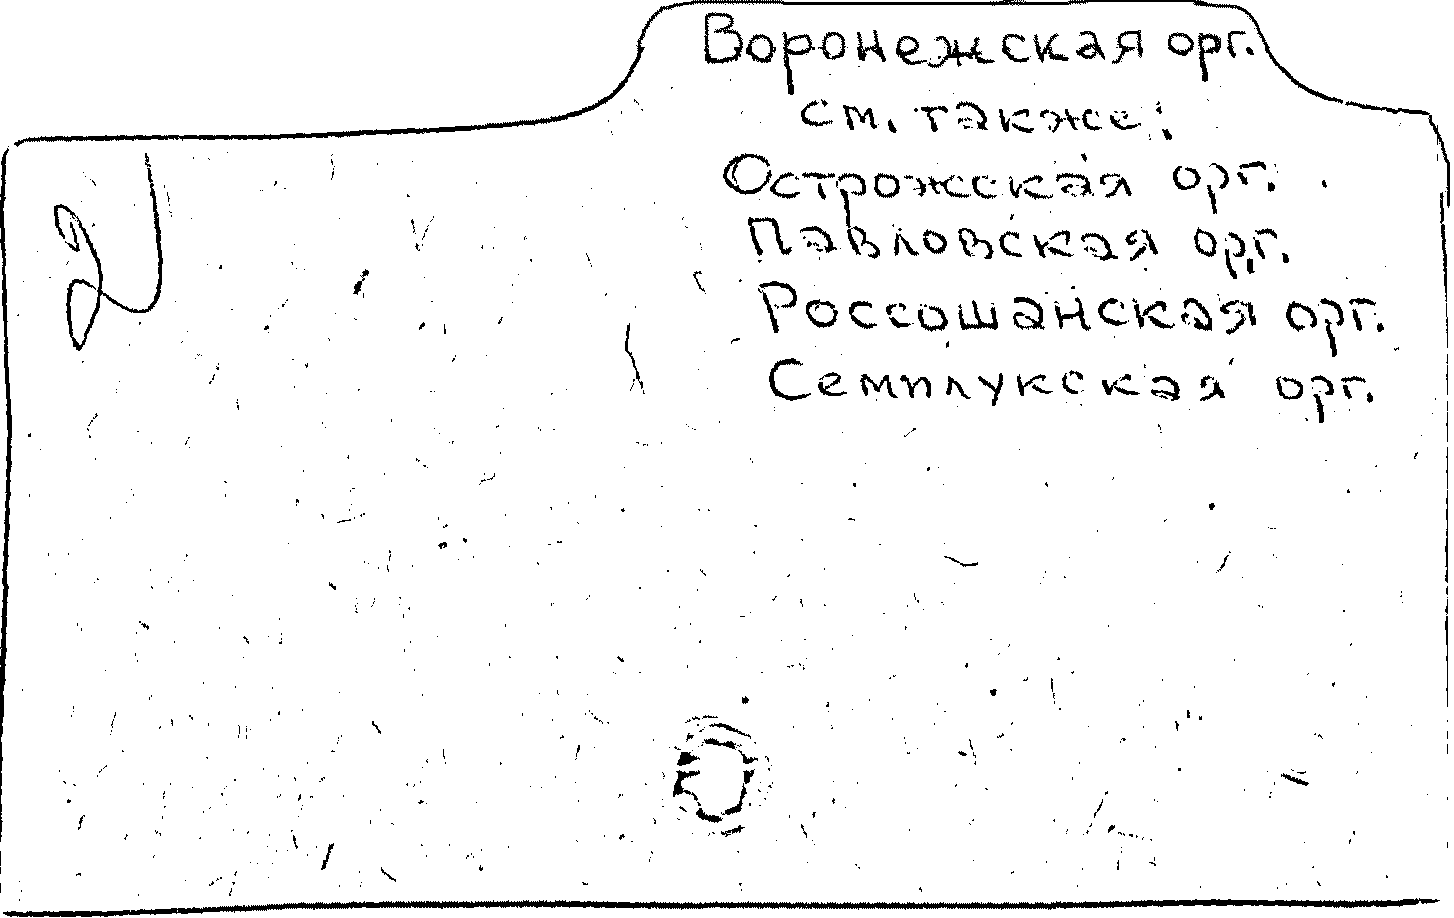 Воронежская орг.
см. также:
Острожская орг.
Павловская орг.
Россошанская орг.
Семилукская орг.